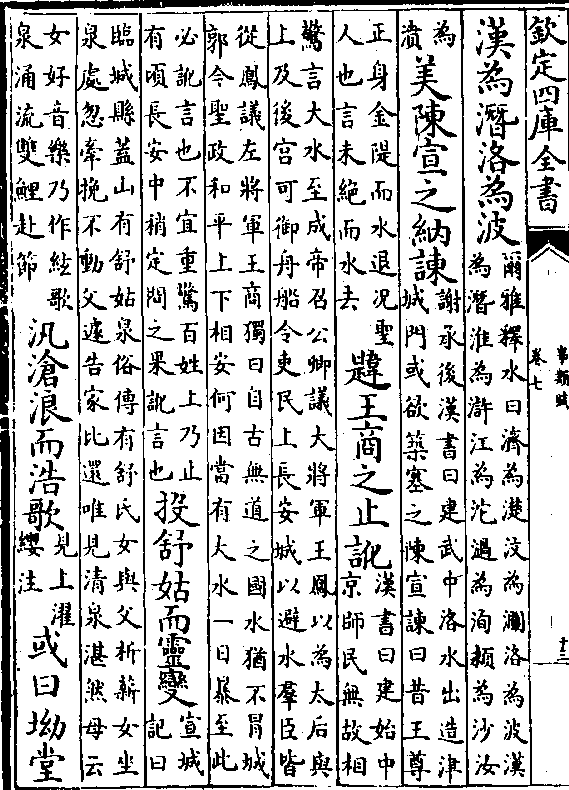 欽定四庫全書
事類賦
卷七
十三
漢為潛洛為波
爾雅釋水曰濟為濋汶為瀾洛為波漢
為潛淮為滸江為沱過為洵潁為沙汝
為
濆
美陳宣之納諫
謝承後漢書曰建武中洛水出造津
城門或欲築塞之陳宣諫曰昔王尊
正身金隄而水退況聖
人也言未絕而水去
韙王商之止訛
漢書曰建始中
京師民無故相
驚言大水至成帝召公卿議大將軍王鳳以為太后與
上及後宫可御舟船令吏民上長安城以避水羣臣皆
從鳳議左將軍王商獨曰自古無道之國水猶不冒城
郭今聖政和平上下相安何因當有大水一日暴至此
必訛言也不宜重驚百姓上乃止
有頃長安中稍定問之果訛言也
投舒姑而靈變
宣城
記曰
臨城縣蓋山有舒姑泉俗傳有舒氏女與父析薪女坐
泉處忽牽挽不動父遽告家比還唯見清泉湛然母云
女好音樂乃作絃歌
泉涌流雙鯉赴節
汎滄浪而浩歌
見上濯
纓注
或曰坳堂